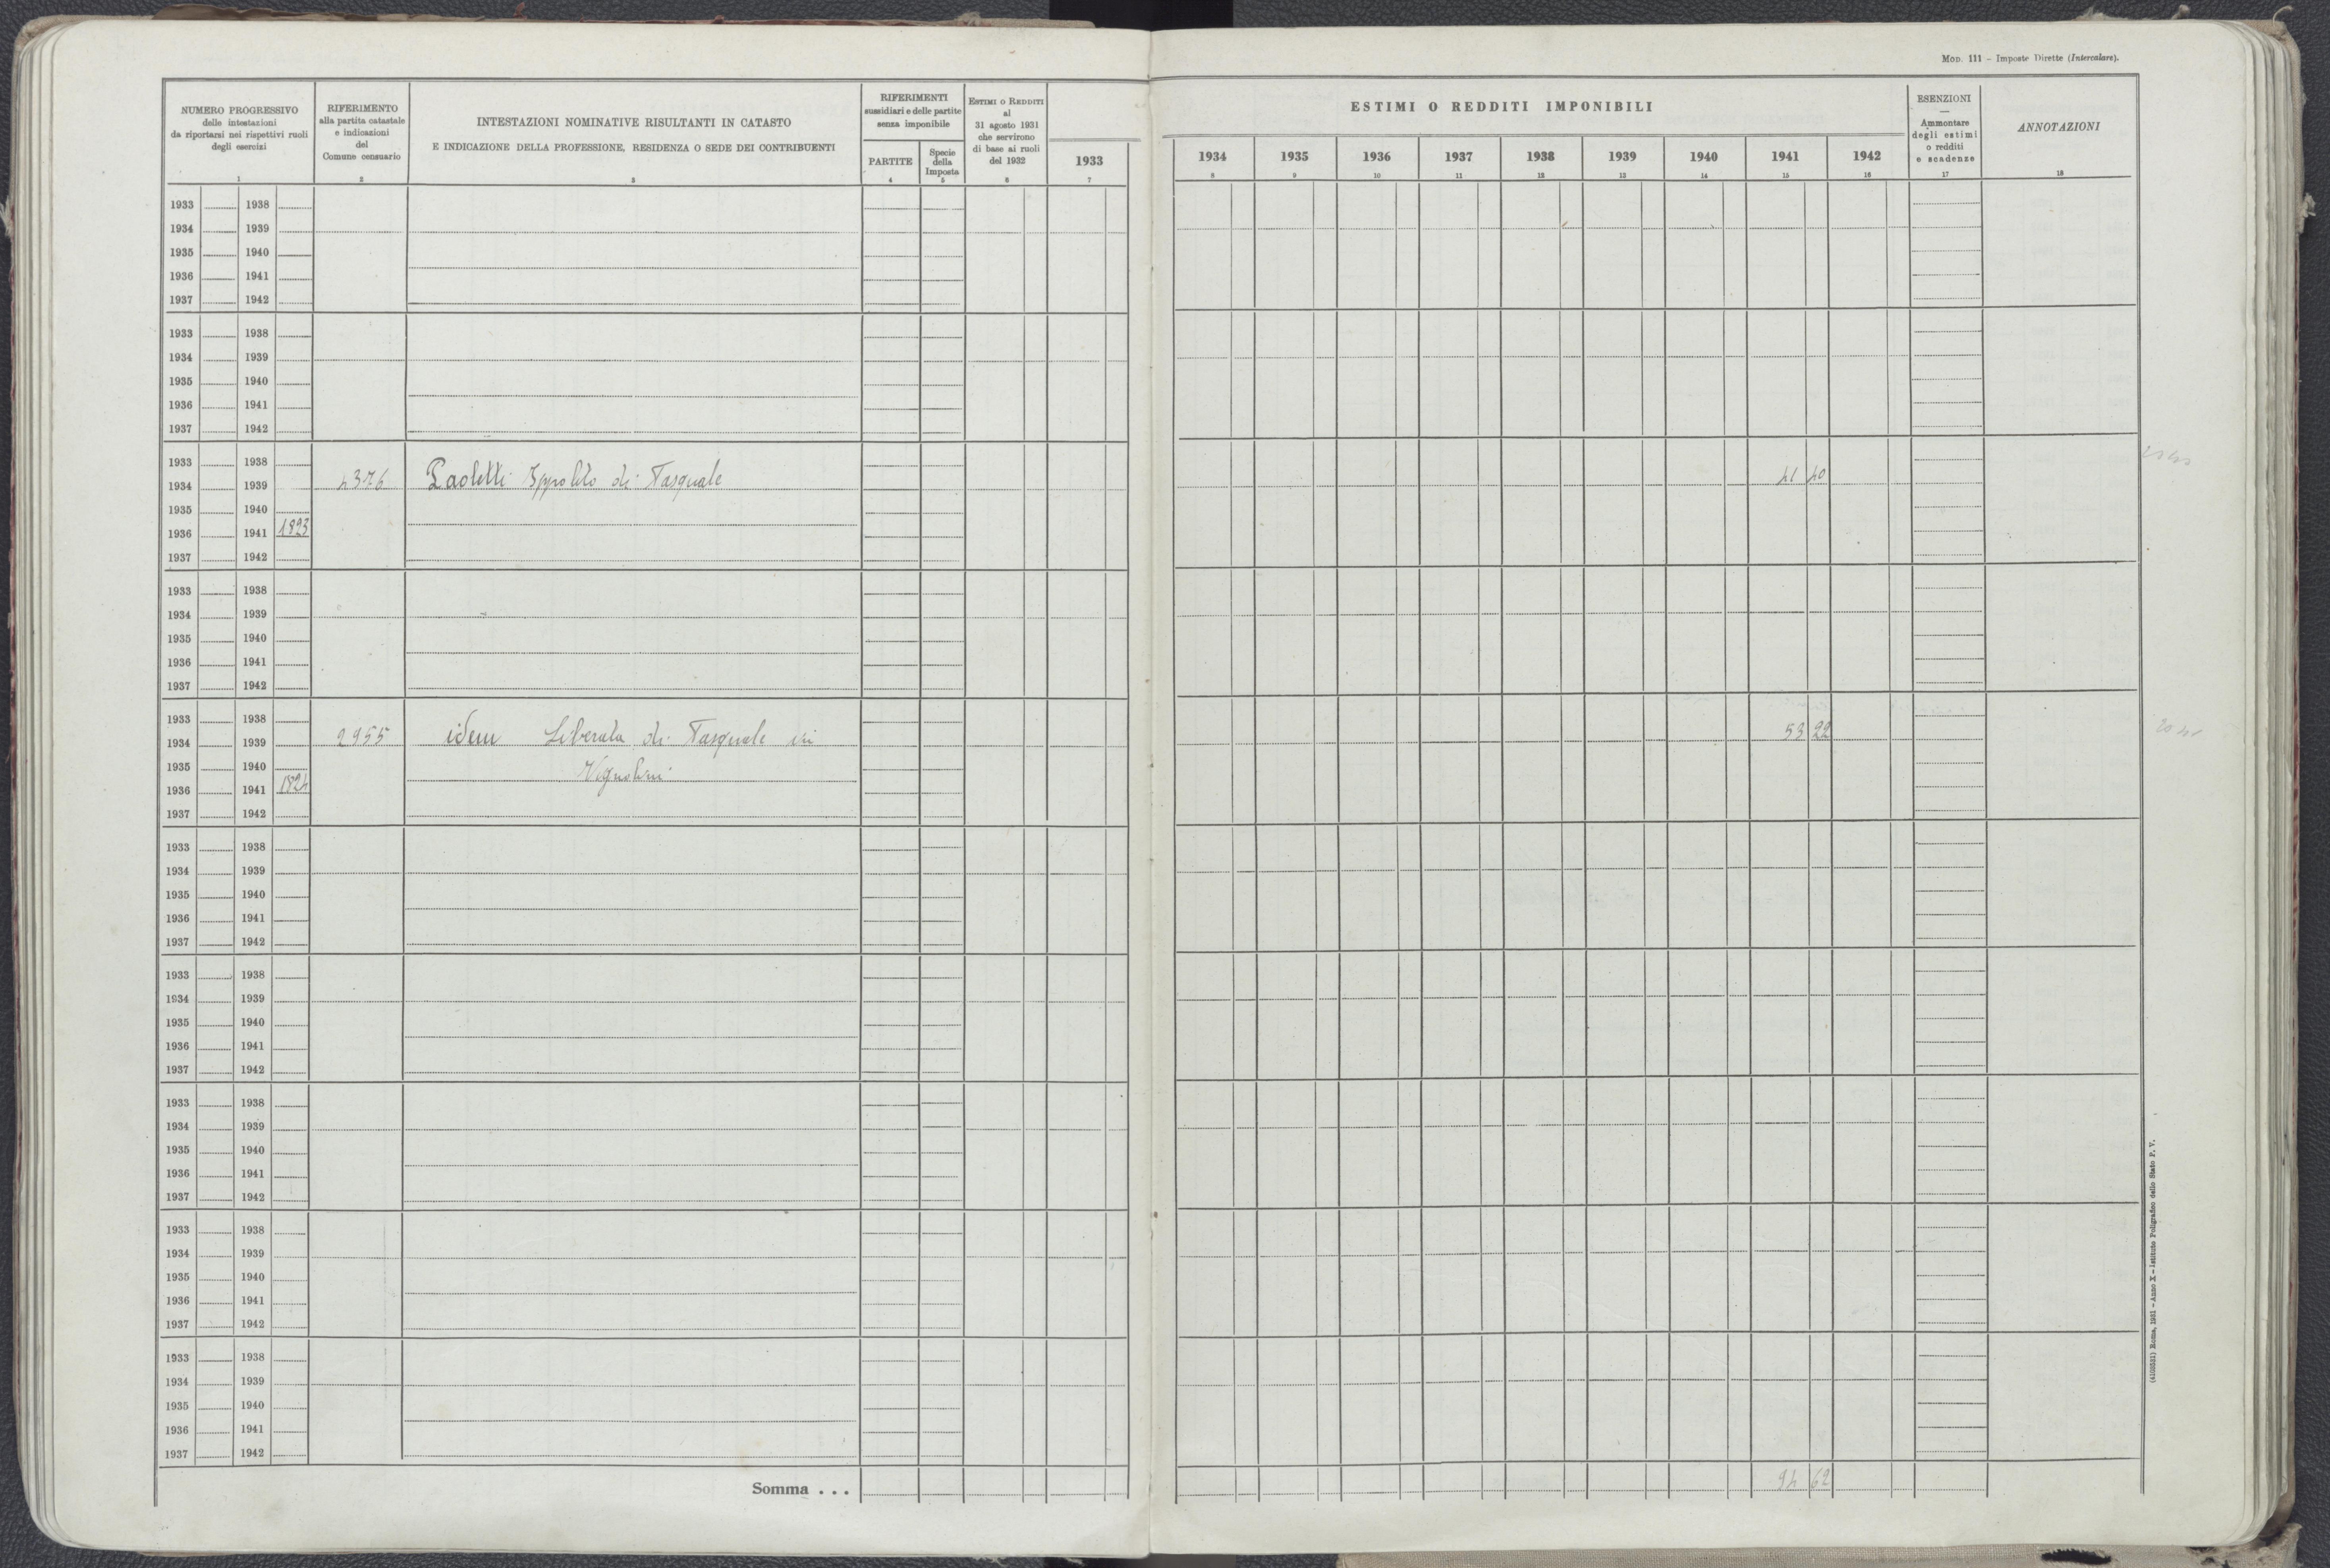 Mod. 111 – Imposte Dirette (Intercalare).
NUMERO PROGRESSIVO
delle intestazioni
da riportarsi nei rispettivi ruoli
degli esercizi
1
RIFERIMENTO
alla partita catastale
e indicazioni
del
Comune censuario
2
INTESTAZIONI NOMINATIVE RISULTANTI IN CATASTO
E INDICAZIONE DELLA PROFESSIONE, RESIDENZA O SEDE DEI CONTRIBUENTI
3
RIFERIMENTI
sussidiari e delle partite
senza imponibile
PARTITE
4
Specie
della
Imposta
5
Estimi o Redditi
al
31 agosto 1931
che servirono
di base ai ruoli
del 1932
6
1933
7
ESTIMI O REDDITI IMPONIBILI
1934 1935 1936 1937 1938 1939 1940 1941 1942
8 9 10 11 12 13 14 15 16
ESENZIONI
—
Ammontare
degli estimi
o redditi
e scadenze
17
ANNOTAZIONI
18
1933 1938
1934 1939
1935 1940
1936 1941
1937 1942
1933 1938
1934 1939
1935 1940
1936 1941
1937 1942
1933 1938
1934 1939 4376 Paoletti Ippolito di Pasquale 41 40
1935 1940
1936 1941 1823
1937 1942
1933 1938
1934 1939
1935 1940
1936 1941
1937 1942
1933 1938
1934 1939 2955 idem Liberata di Pasquale in 53 22
1935 1940 Vignolini
1936 1941 1824
1937 1942
1933 1938
1934 1939
1935 1940
1936 1941
1937 1942
1933 1938
1934 1939
1935 1940
1936 1941
1937 1942
1933 1938
1934 1939
1935 1940
1936 1941
1937 1942
1933 1938
1934 1939
1935 1940
1936 1941
1937 1942
1933 1938
1934 1939
1935 1940
1936 1941
1937 1942
Somma . . . 94 62
Roma, 1931 – Anno X – Istituto Poligrafico dello Stato P. V.